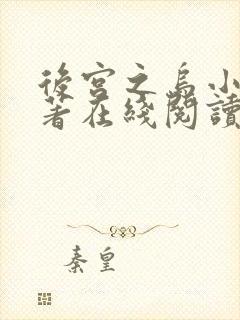 後宮之烏小
著在綫閱讀
秦皇